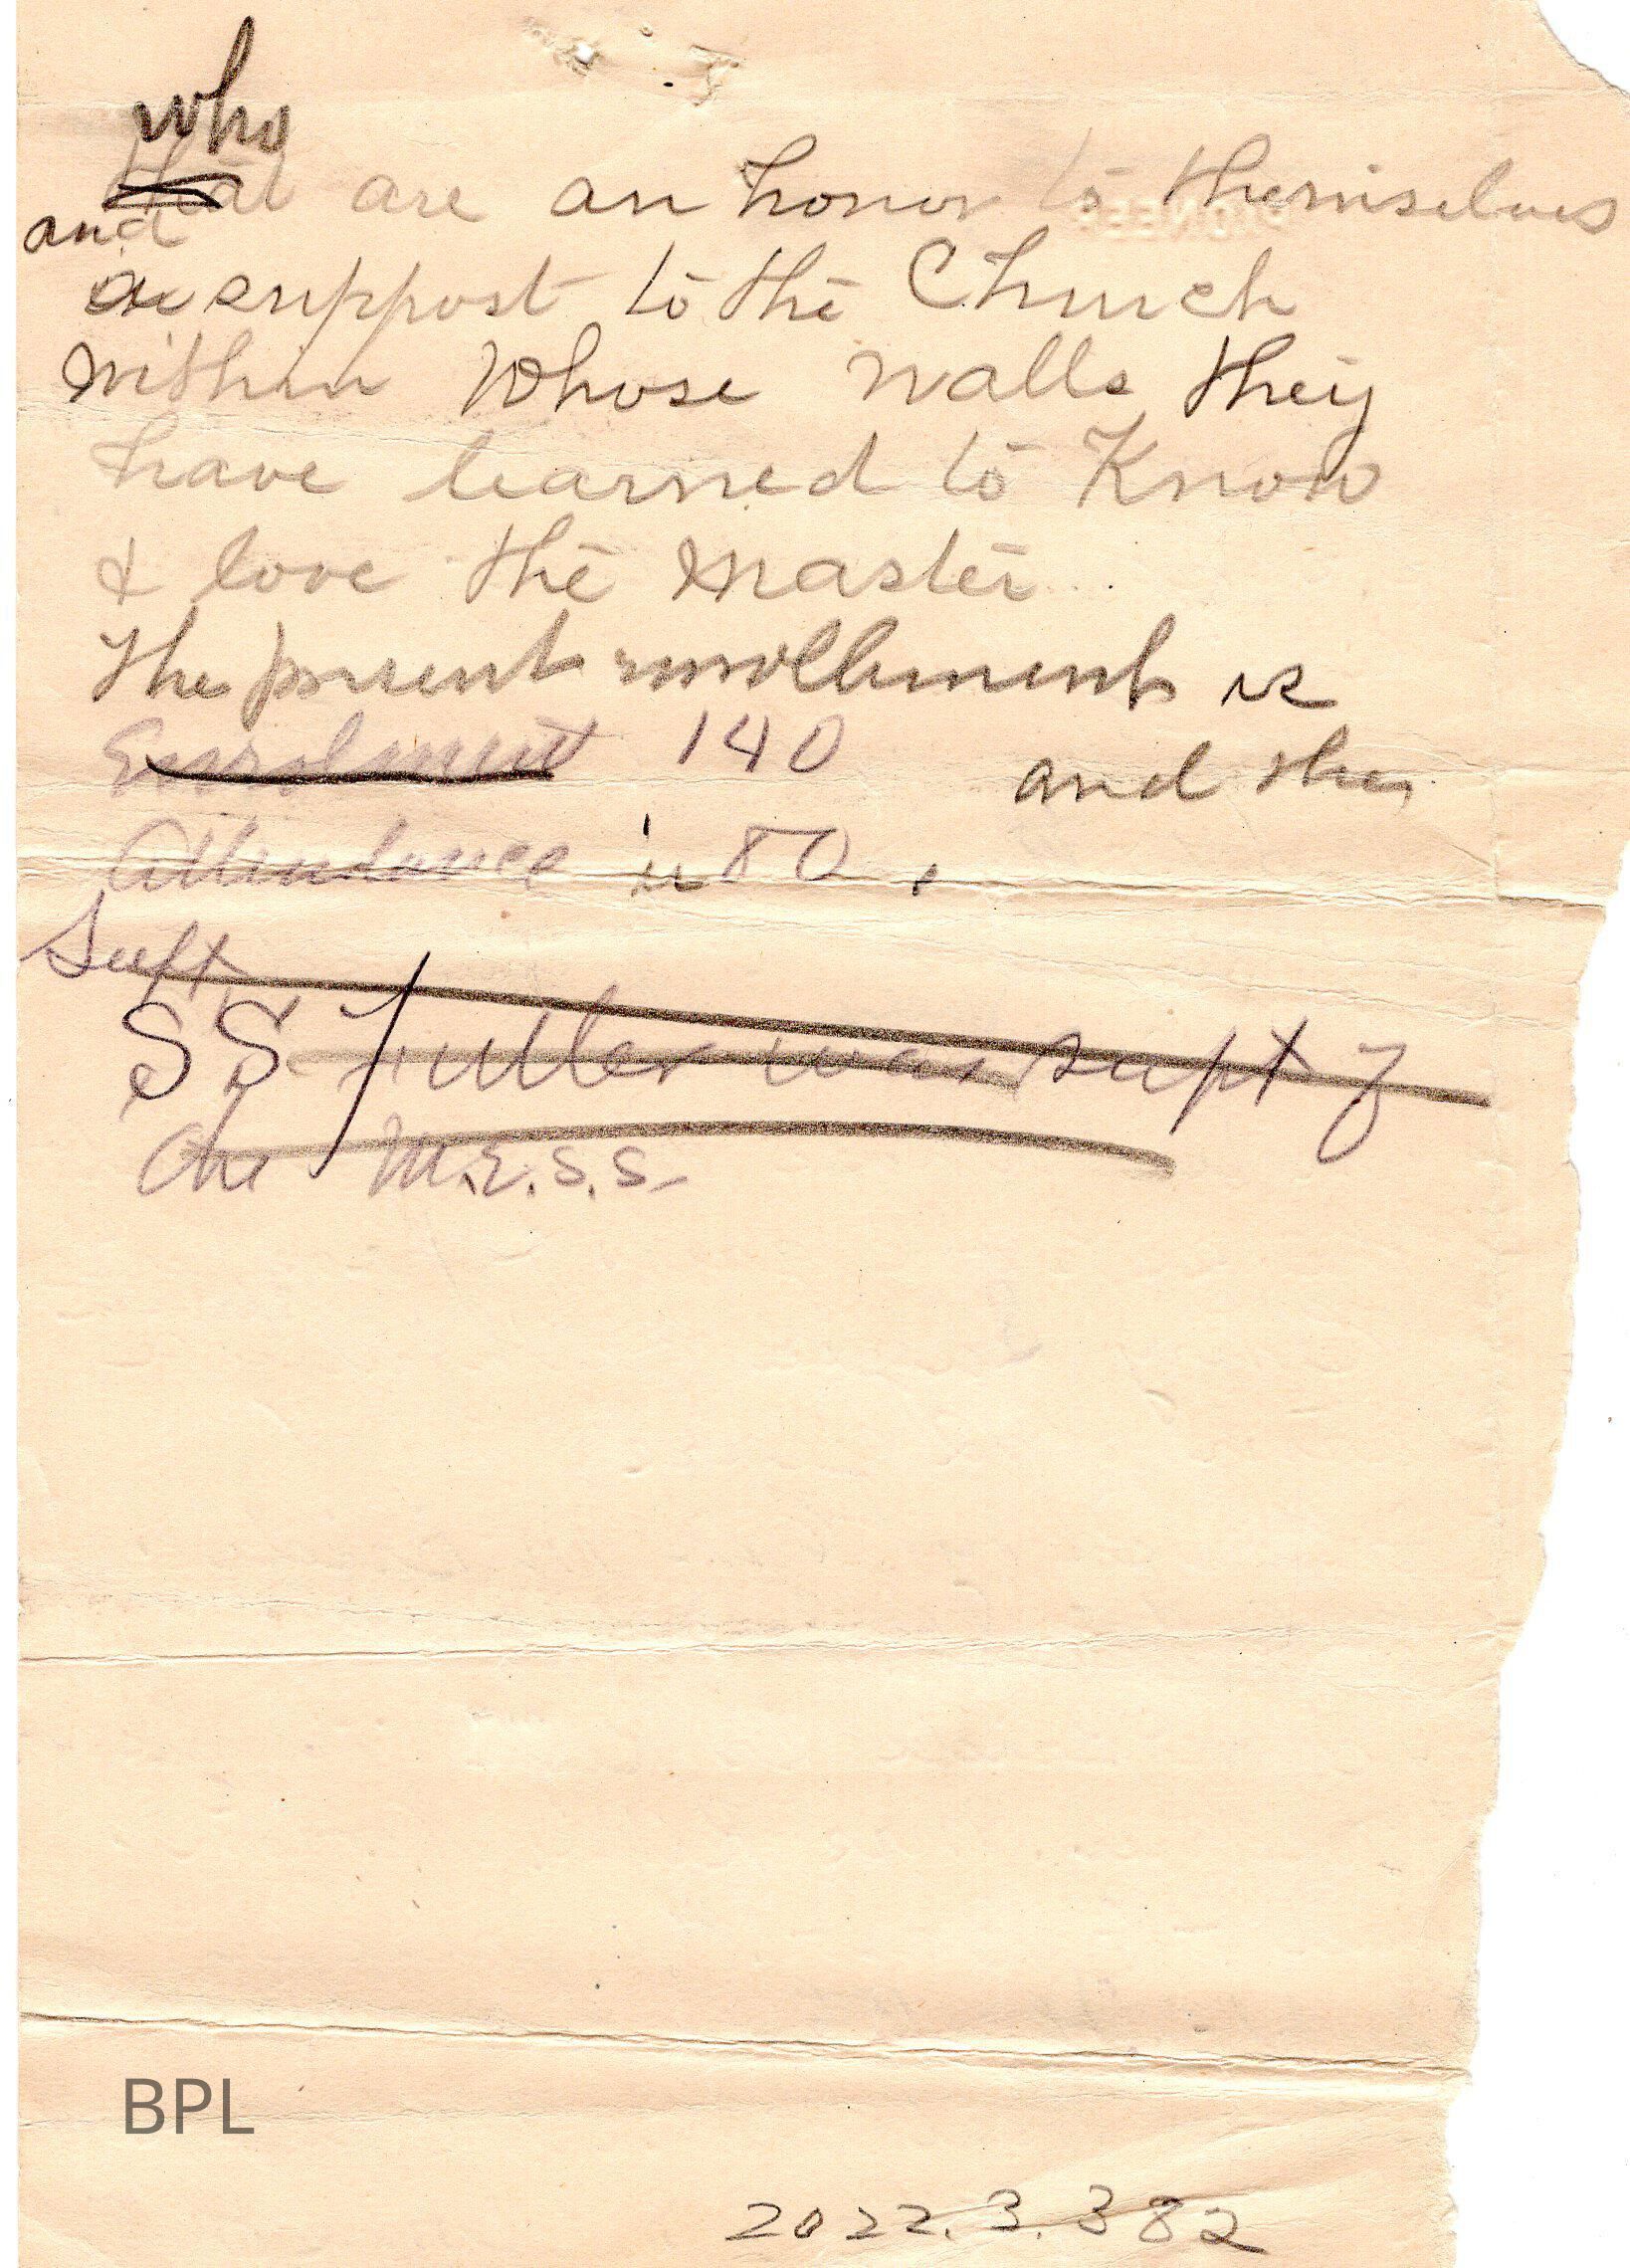 who
that are an honor to themselves
and
a support to the Church
within whose walls they
have learned to Know
& love the Master.
The present enrollment is
Enrolment 140 and the
Attendance is 80.
Supt
S S Fuller was supt of
the M.E.S.S.
BPL
2022.3.382